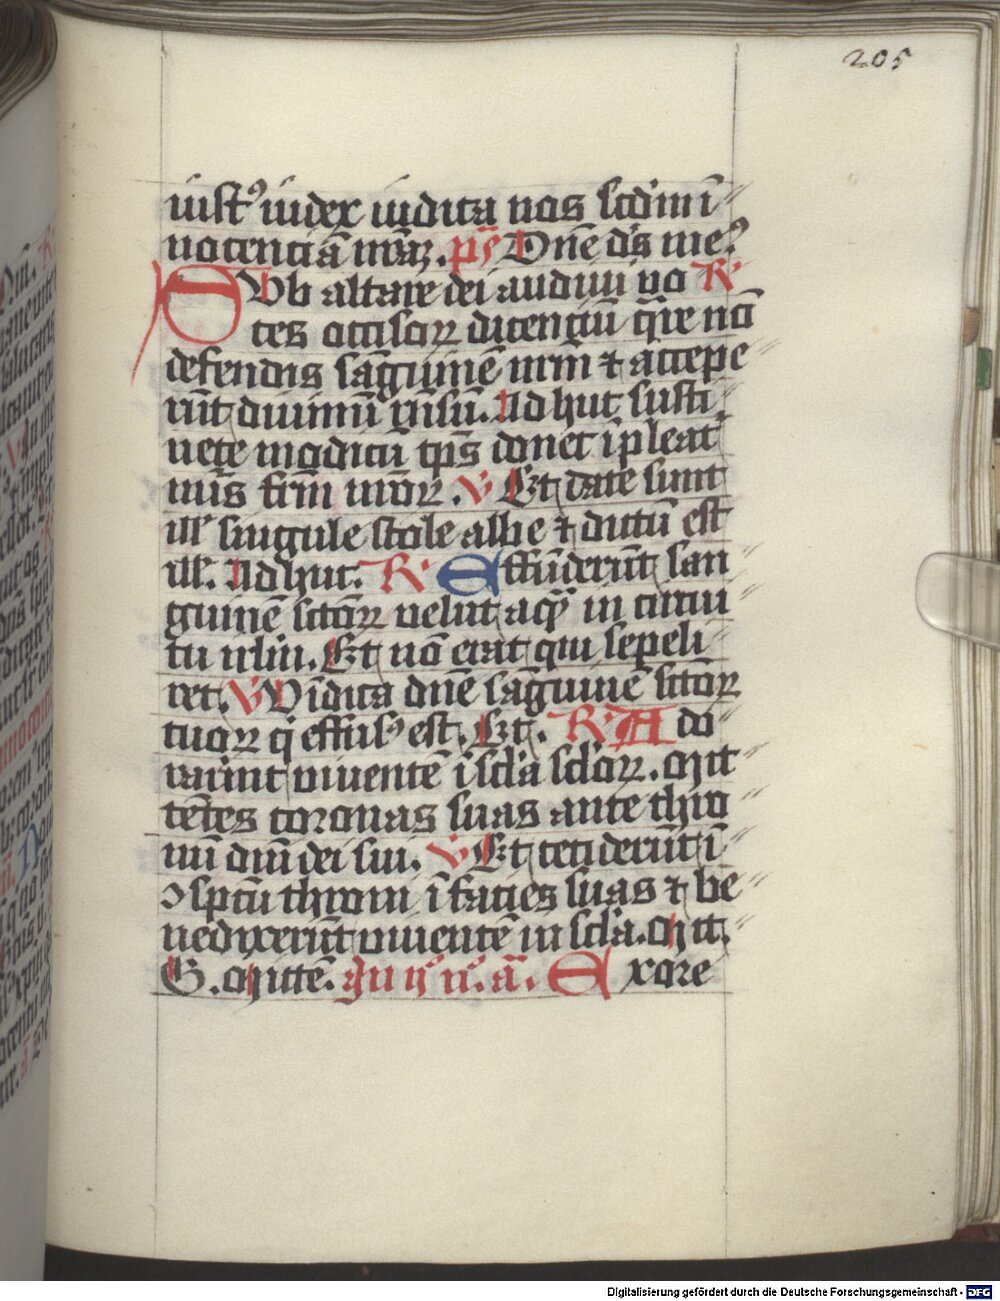 205
iust⁹ iudex iudica nos scd'm ī
nocenciā nrāꝝ. p̄s Dn̄e d's me⁹
Sub altare dei audiui vo R'
ces occisoꝝ dicenciū qr̄e nō
defendis sāguinē nr̄m ⁊ accepe
rūt diuinū rn̄sū. Adhuc susti
nete modicū tp̄s donec īpleat'
nūs fr̄m vr̄oꝝ. V Et date sunt
ill' singule stole albe ⁊ dictū est
ill'. Adhuc. R' Effūderūt san
guinē sctōꝝ velut aqͣ in circui
tu irl'm. Et nō erat qui sepeli
ret. V Vīdica dn̄e sāguinē sctōꝝ
tuoꝝ q' effus⁹ est. Et. R' Ado
rauīnt viuentē ī scl'a scl'oꝝ. Mit
tētes coronas suas ante thro
nū dn̄i dei sui. V Et cecīderūt ī
ↄspcū throni ī facies suas ⁊ be
nedixerūt viuentē in scl'a. Mit.
G. Mittē. In ii° n°. a. Exore
Digitalisierung gefördert durch die Deutsche Forschungsgemeinschaft - DFG